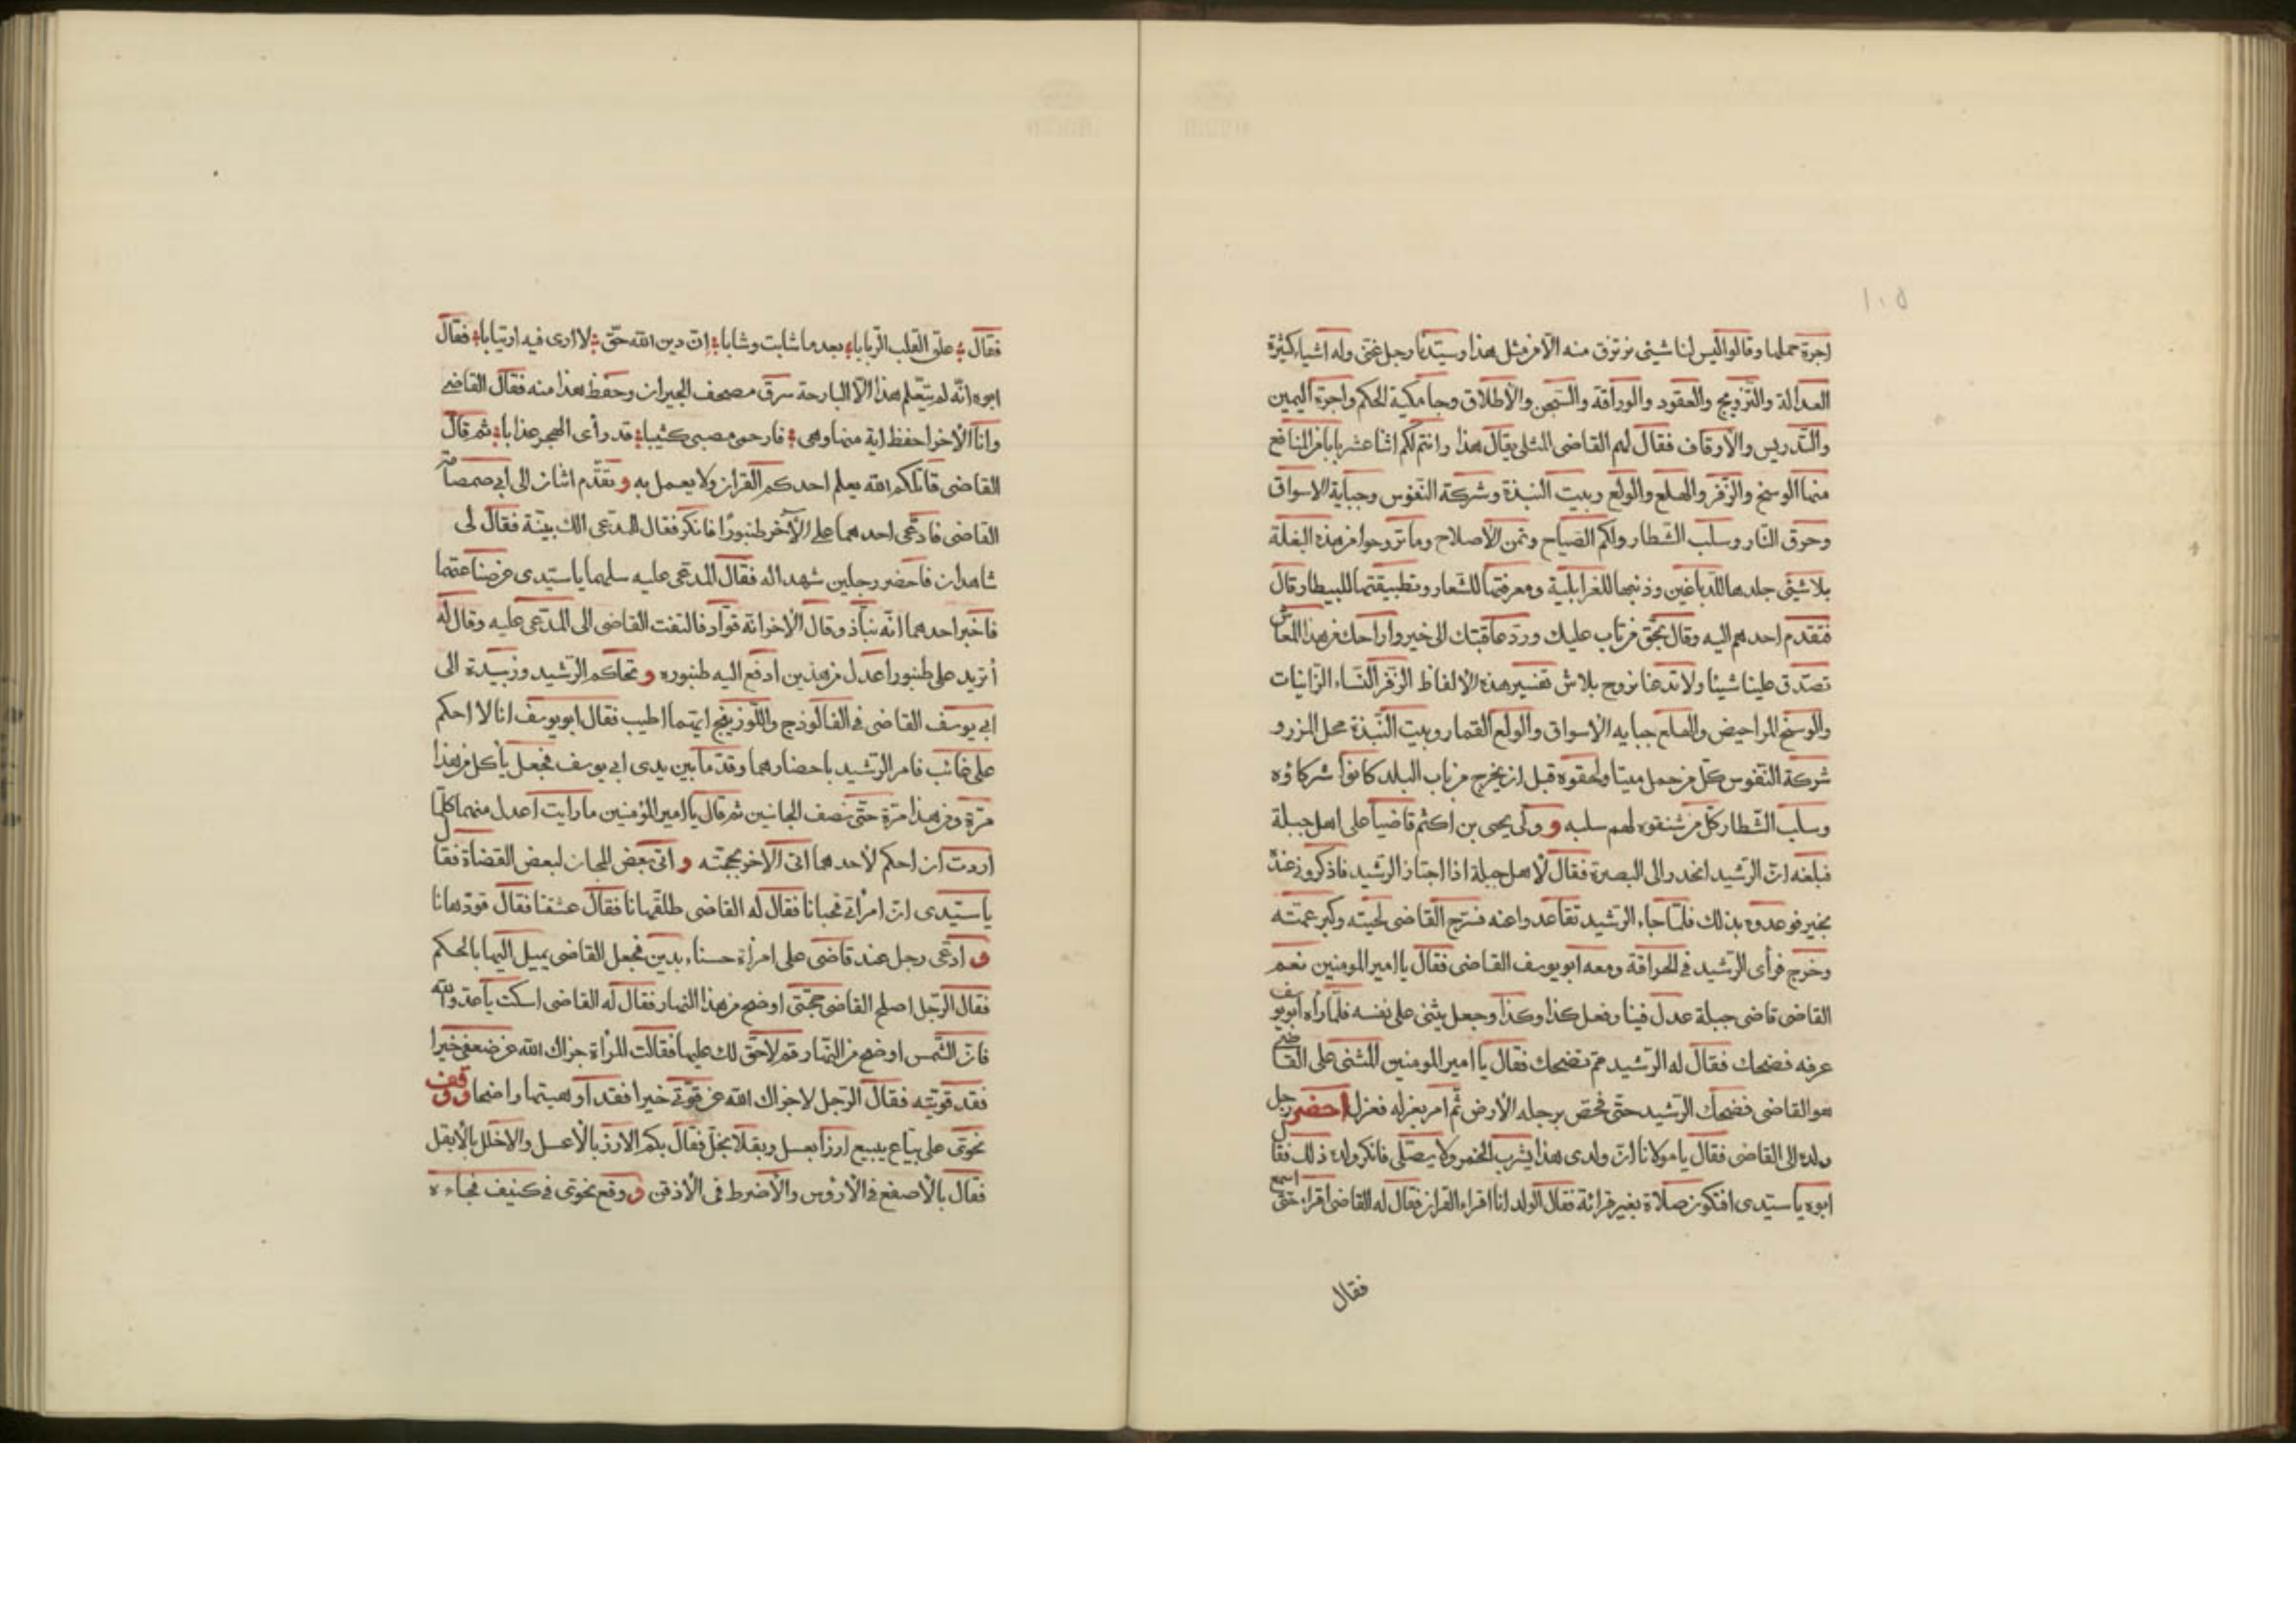 ١٠٥
اجرة حملها وقالوا اليس لنا شيئ نرتزق منه الا من مثل هذا وسيّدنا رجل غنى وله اشياء كثيرة
العدالة والتّزويج والعقود والوراقة والسّجن والأطلاق وجامكية الحكم واجرة اليمين
والتّدريس والأوقاف فقال لهم القاضى المثلى يقال هذا وانتم لكم اثنا عشر بابا من المنافع
منها الوسخ والزّفر والهلع والولع وبيت النبذة وشركة النّفوس وجباية الاسواق
وحرق النّار وسلب الشطار ولكم الصّياح وثمن الأصلاح وما تروحوا من هذه البغلة
بلا شيئ جلدها للدّباغين وذنبها للغرابلية ومعرفتها للشّعار وتطبيقتها للبيطار وقال
فتقدم احدهم اليه وقال بحقّ من تاب عليك وردّ عاقبتك الى خير واراحك من هذا المعاش
تصدّق علينا شيئا ولا تدعنا نروح بلاش تفسير هذه الألفاظ الزّفر النّساء الزّانيات
والوسخ المراحيض والهلع جبايه الاسواق والولع القمار وبيت النّبذة محل المزر و
شركة النّفوس كلّ من حمل ميتا ولحقوه قبل ان يخرج من باب البلد كانوا شركاؤه
وسلب الشّطار كلّ من شنقوه لهم سلبه و ولى يحيى بن اكثم قاضيا على اهل جبلة
فبلغه انّ الرّشيد انحدر الى البصرة فقال لأهل جبلة اذا اجتاز الرّشيد فاذكرونى عنده
بخير فوعدوه بذلك فلمّا جاء الرّشيد تقاعدوا عنه فسرّح القاضى لحيته وكبر عمّته
وخرج فرأى الرّشيد فى الحراقة ومعه ابو يوسف القاضى فقال يا امير المومنين نعم
القاضى قاضى جبلة عدل فينا وفعل كذا وكذا وجعل يثنى على نفسه فلمّا رأه ابو يوسف
عرفه فضحك فقال له الرّشيد ممّ تضحك فقال يا امير المومنين المثنى على القاضى
هو القاضى فضحك الرّشيد حتّى فحص برجله الأرض ثمّ امر بعزله فعزل احضر رجل
ولده الى القاضى فقال يا مولانا انّ ولدى هذا يشرب الخمر ولا يصلّى فانكر ولده ذلك فقال
ابوه يا سيّدى افتكون صلاة بغير قرائة فقال الولد انا اقراء القران فقال له القاضى اقراء حتى اسمع
فقال
فقال ؛ علق القلب الرّبابا؛ بعد ما شابت وشابا؛ انّ دين الله حقّ ؛ لا ارى فيه ارتيابا؛ فقال
ابوه انّه لم يتعّلم هذا الّا البارحة سرق مصحف الجيران وحفظ هذا منه فقال القاضى
وانا الأخر احفظ اية منها وهى ؛ فارحمى مصبى كئيبا؛ قد رأى الهجر عذابا؛ ثم قال
القاضى قاتلكم الله يعلم احدكم القران ولا يعمل به و تقدّم اثنان الى ابى صمصامة
القاضى فادّعى احدهما على الأخر طنبورا فانكر فقال للمدّعى الك بيّنة فقال لى
شاهدان فاحضر رجلين شهدا له فقال المدّعى عليه سلهما يا سيّدى عن صناعتهما
فاخبر احدهما انّه نبّاذ وقال الأخر انّه قوّاد فالتفت القاضى الى المدّعى عليه وقال له
أتريد على طنبور اعدل من هذين ادفع اليه طنبوره و تحاكم الرّشيد وزبيدة الى
ابى يوسف القاضى فى الفالوذج واللّوزينج ايّهما اطيب فقال ابو يوسف انا لا احكم
على غائب فامر الرّشيد باحضارهما وقدّما بين يدى ابى يوسف فجعل يأكل من هذا
مرّة ومن هذا مرّة حتّى نصف الجانبين ثم قال يا امير المؤمنين ما رايت اعدل منهما كلّما
اردت ان احكم لأحدهما اتى الأخر بحجّته و اتى بعض المجان لبعض القضاة فقال
يا سيّدى انّ امرأتى قحبانا فقال له القاضى طلقهانا فقال عشقنا فقال قودهانا
و ادّعى رجل عند قاضى على امرأة حسناء بدين فجعل القاضى يميل اليها بالحكم
فقال الرّجل اصلح القاضى حجّتى اوضح من هذا النهار فقال له القاضى اسكت يا عدوّ الله
فانّ الشّمس اوضح من النّهار قم لا حقّ لك عليها فقالت المرأة جزاك الله عن ضعفى خيرا
فقد قوّيته فقال الرّجل لا جزاك الله عن قوّتى خيرا فقد اوهيتها واضعا ووقف
نحوى على بيّاع يبيع ارزا بعسل وبقلا بخلّ فقال بكم الارز بالأعسل والاخلل بالأبقل
فقال بالأصفع فى الأرؤس والأضرط فى الأذقن و وقع نحوى فى كنيف فجاءه